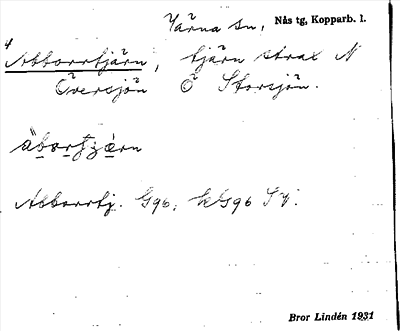 Järna sn, Nås tg, Kopparb. l.
4
Abborrtjärn, tjärn strax N
Översjön Ö Storsjön.
Abborrtj. G96;
Bror Lindén 1931